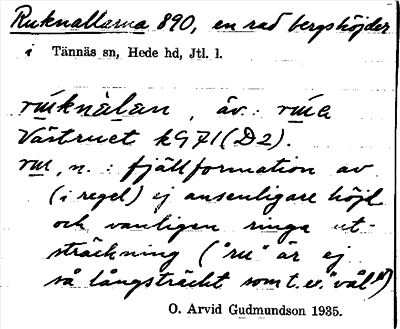 Ruknallarna 890, en rad bergshöjder
i Tännäs sn, Hede hd, Jtl. l.
rʉknàlan, äv.: rʉa
Västruet k971(D2).
rʉ, n.: fjällformation av
(i regel) ej ansenligare höjd
och vanligen ringa ut-
sträckning ("ru" är ej
så långsträckt som t.ex. "vål")
O. Arvid Gudmundson 1935.